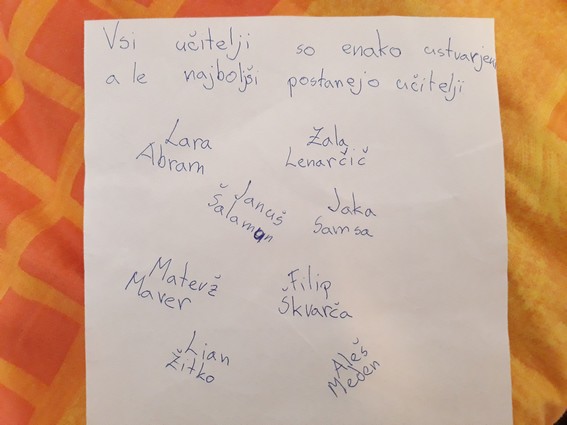 Vsi učitelji so enako ustvarjeni
a le najboljši postanejo učitelji
Lara
Abram
Žala
Lenarčič
Januš
Šalamun
Jaka
Samsa
Matevž
Maver
Filip
Škvarča
Lian
Žitko
Aleš
Meden